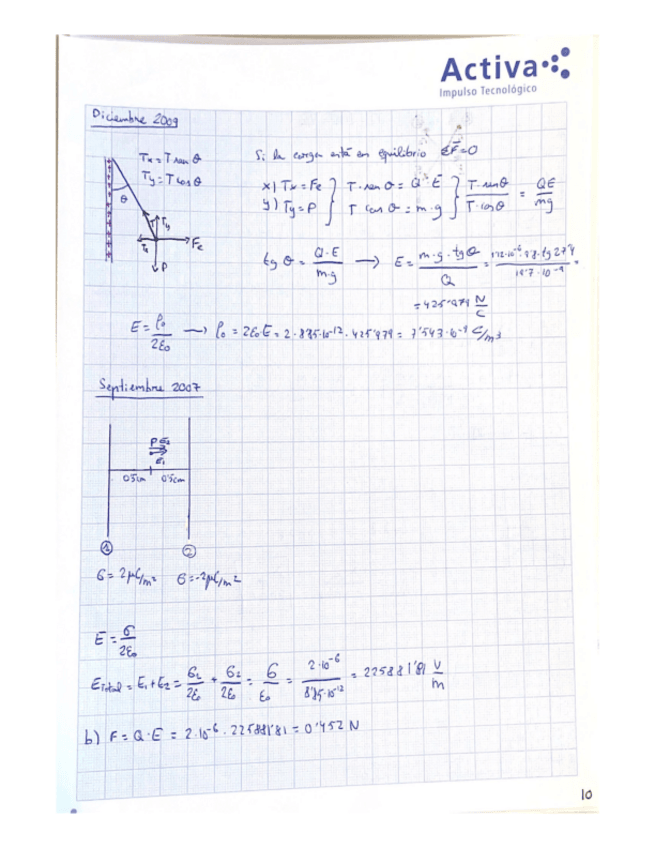 Activa
Impulso Tecnológico
Diciembre 2009
Tx = T sen θ
Ty = T cos θ
θ
T Ty
Tx Fe
P
Si la carga está en equilibrio ΣF̄=0
x) Tx = Fe } T·sen θ = Q·E } T·senθ / T·cosθ = QE / mg
y) Ty = P } T cos θ = m·g
tg θ = Q·E / m·g → E = m·g·tgθ / Q =
= 425'979 N/C
E = ρ₀ / 2ε₀ → ρ₀ = 2ε₀E = 2·8'85·10⁻¹²·425'979 = 7'543·10⁻⁹ C/m³
Septiembre 2007
P E₂
E₁
0'5cm 0'5cm
1 2
σ = 2μC/m² σ = -2μC/m²
E = σ / 2ε₀
E total = E₁ + E₂ = σ₁ / 2ε₀ + σ₂ / 2ε₀ = σ / ε₀ = 2·10⁻⁶ / 8'85·10⁻¹² = 225881'81 V/m
b) F = Q·E = 2·10⁻⁶ · 225881'81 = 0'452 N
10